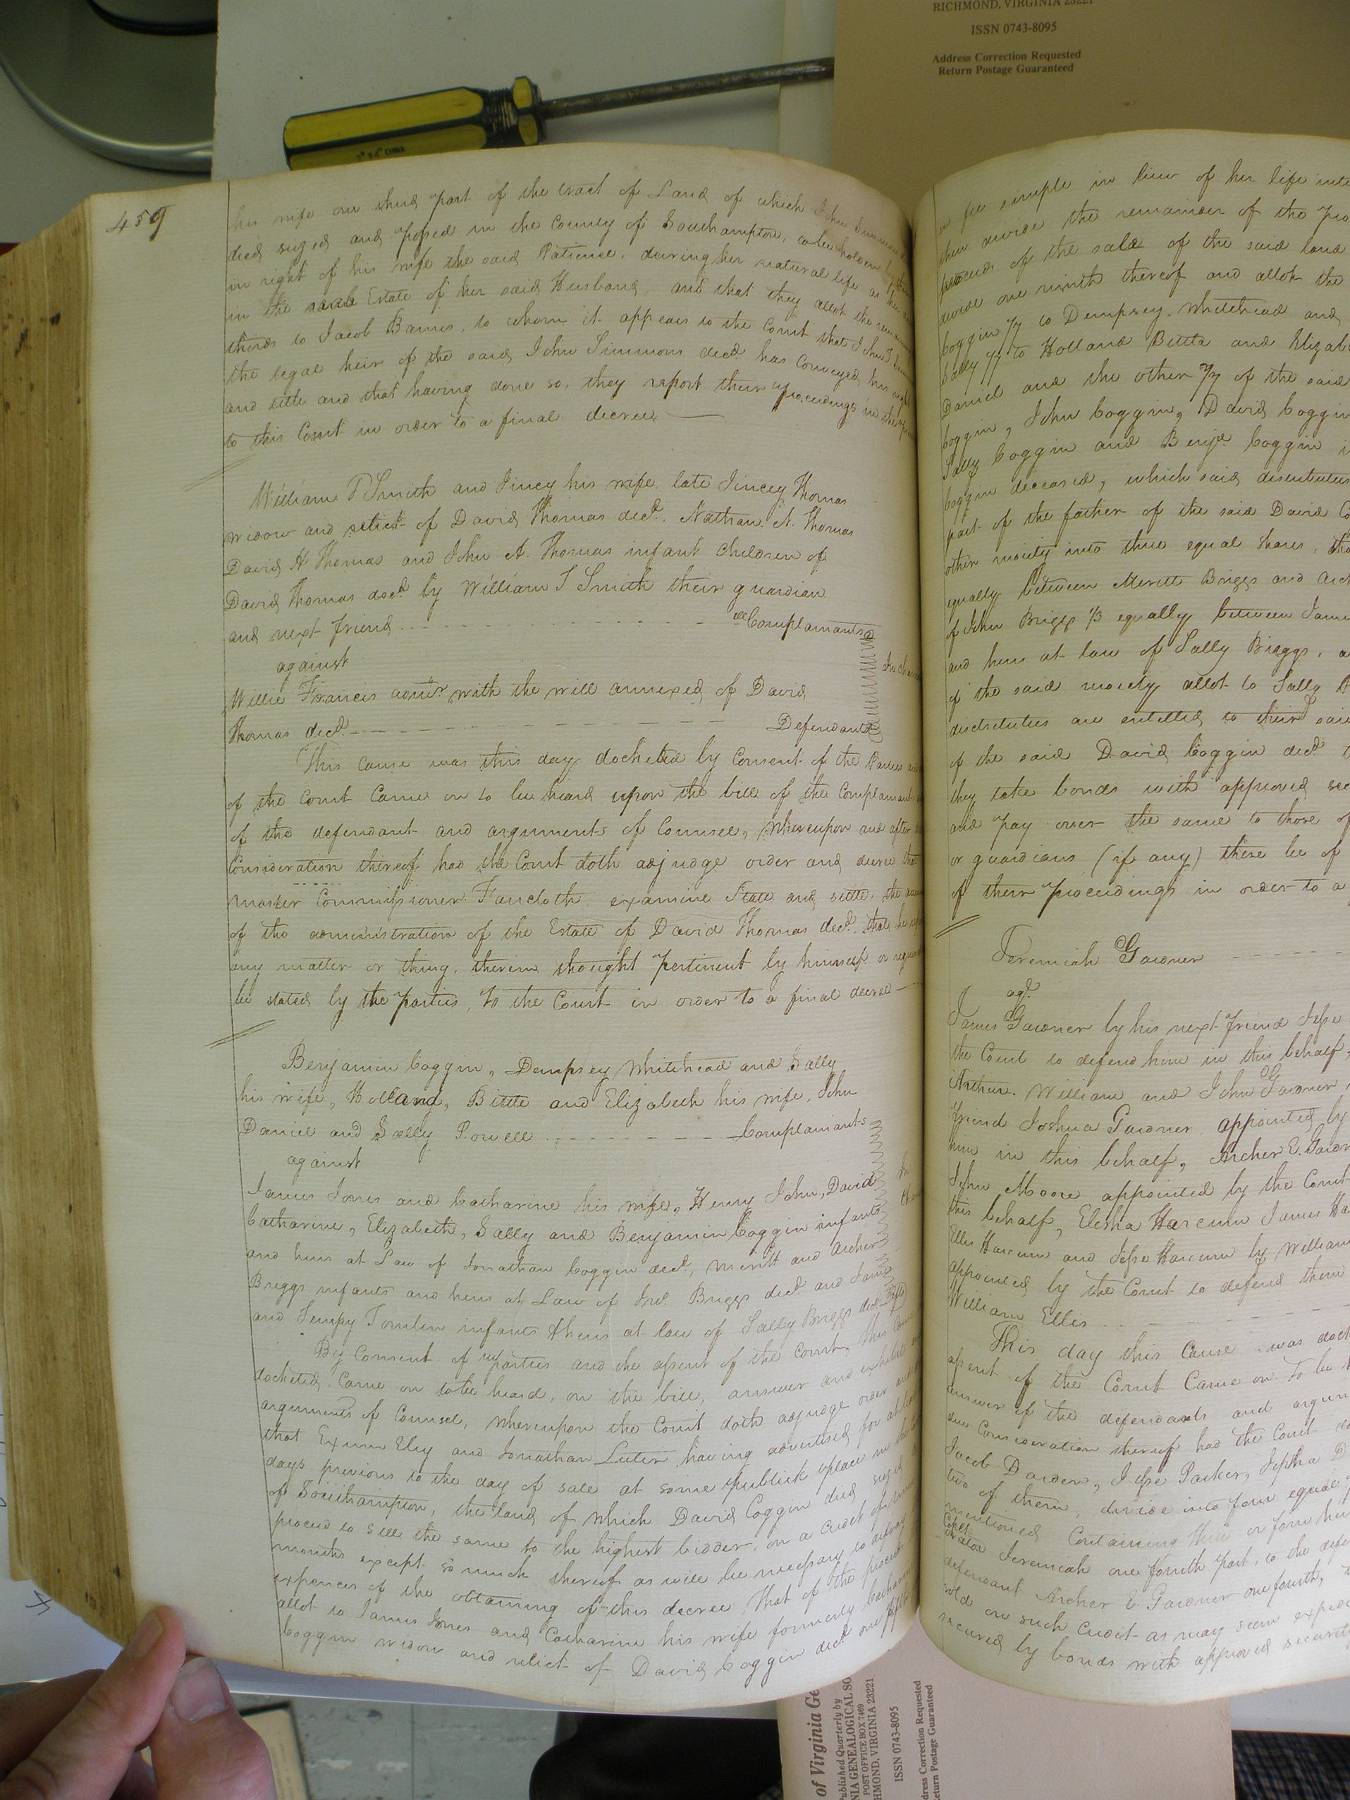 RICHMOND, VIRGINIA 23221
ISSN 0743-8095
Address Correction Requested
Return Postage Guaranteed
459
his wife one third part of the tract of Land of which John Simmons
died siezed and possed in the County of Southampton, to be holden by
in right of his wife the said Patience, during her natural life as her
in the Estate of her said Husband, and that they allot the
thirds to Jacob Barnes, to whom it appears to the Court that John
the legal heir of the said John Simmons decd has conveyed his right
and title and that having done so, they report their proceedings in
to this Court in order to a final decree
William T Smith and Jincey his wife late Jincey Thomas
widow and relict of David Thomas decd. Nathan A. Thomas
David H Thomas and John A. Thomas infant children of
David Thomas decd by William T Smith their guardian
and next friend Complainants
against
Willie Francis admr with the will annexed of David
Thomas decd Defendant
This cause was this day docketed by Consent of the Parties
of the Court Came on to be heard upon the bill of the Complainants
of the defendant and arguments of Counsel, Whereupon and after
Consideration thereof had the Court doth adjudge order and decree that
master Commissioner Faucloth examine State and settle, the
of the administration of the Estate of David Thomas decd. that he
any matter or thing, therein thought pertinent by himself or
be stated by the parties, To the Court in order to a final decree
Benjamin Coggin, Dempsey Whitehead and Sally
his wife, Holland, Bittle and Elizabeth his wife, John
Daniel and Sally Powell Complainants
against
James Jones and Catharine his wife, Henry John, David
Catharine, Elizabeth, Sally and Benjamin Coggin infants
and heirs at Law of Jonathan Coggin decd, Merritt and Archer
Briggs infants and heirs at Law of Jno. Briggs decd and James
and Tempy Tomlin infants & heirs at law of Sally Briggs decd
By Consent of parties and the assent of the Court, this Cause
docketed Came on to be heard, on the bill, answer and exhibits
arguments of Counsel, Whereupon the Court doth adjudge order
that Exum Eley and Jonathan Luter, having advertised for
days previous to the day of sale at some publick place in
of Southampton, the land of which David Coggin died
proceed to sell the same to the highest bidder, on a credit of
months except so much thereof as will be necessary to
expences of the obtaining of this decree, That of the proceeds
allot to James Jones and Catharine his wife formerly Catharine
Coggin widow and relict of David Coggin decd one fifth
in fee simple in lieu of her life
then divide the remainder of the
proceeds of the sale of the said land
divide one ninth thereof and allot the
Coggin 1/7 to Dempsey Whitehead and
Sally 1/7 to Holland Bittle and
Daniel and the other 1/7 of the said
Coggin, John Coggin, David Coggin
Sally Coggin and Benja. Coggin
Coggin deceased, which said
part of the father of the said David
other moiety into three equal shares,
equally between Meritt Briggs and
of John Briggs 1/3 equally between
and heirs at law of Sally Briggs,
of the said moiety allot to Sally
distributees are entitled to their said
of the said David Coggin decd
they take bonds with approved
and pay over the same to those of
or guardians (if any) there be of
of their proceedings in order to a
Jeremiah Gardner
agt.
James Gardner by his next friend Jesse
the Court to defend him in this behalf,
Arthur. William and John Gardner
friend Joshua Gardner appointed by
him in this behalf, Archer E. Gardner
John Moore appointed by the Court
this behalf, Elisha Harcum James
Ellis Harcum and Jesse Harcum by William
appointed by the Court to defend them
William Ellis
This day this Cause was
assent of the Court Came on To be
answer of the defendants and
due Consideration thereof had the Court
Jacob Darden, Jesse Parker, Jeptha
two of them, divide into four equal
mentioned Containing three or four
Jeremiah one fourth part, to the
defendant Archer E Gardner one fourth,
sold on such Credit as may seem
secured by bonds with approved security
of Virginia
Published Quarterly by
POST OFFICE BOX 7469
ISSN 0743-8095
Return Postage Guaranteed